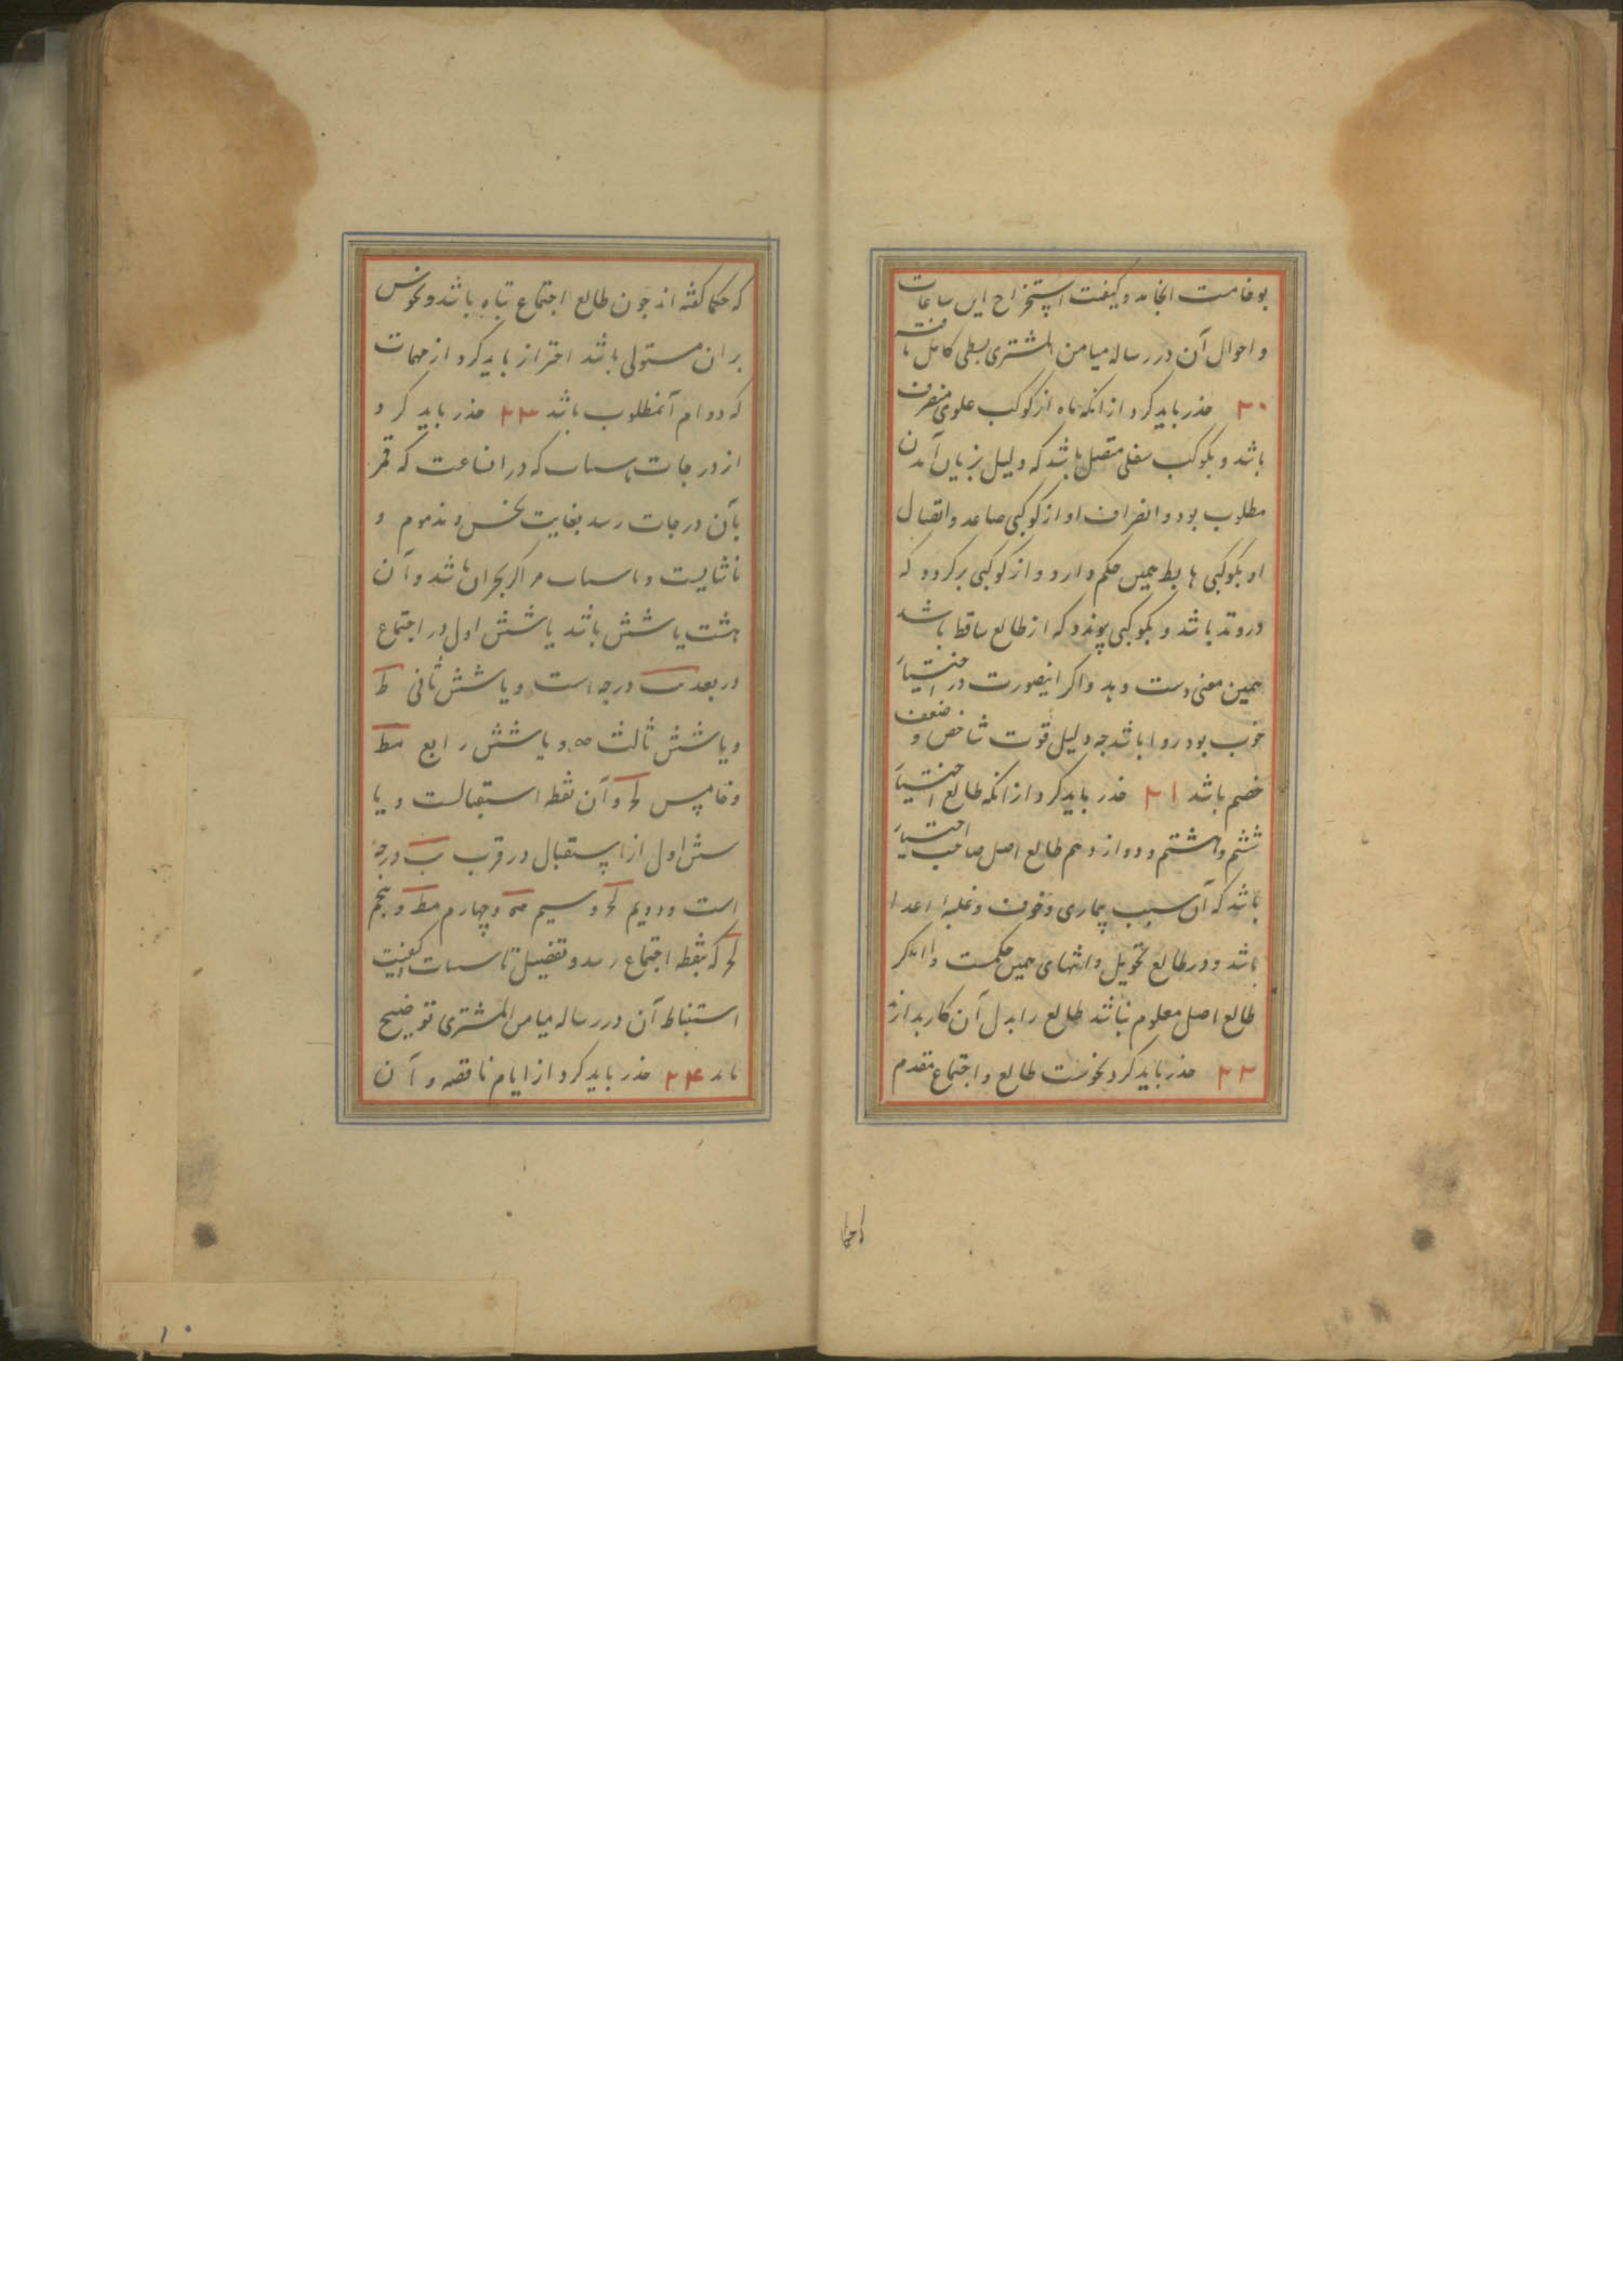 بوخامت انجامد و کیفیت استخراج این ساعات
و احوال آن در رساله میامن المشتری بسطی کامل یافته
۲۰ حذر باید کرد از انکه ماه از کوکب علوی منصرف
باشد و بکوکب سفلی متصل باشد که دلیل بزیان آمدن
مطلوب بود و انصراف او از کوکبی صاعد و اتصال
او بکوکبی هابط همین حکم دارد و از کوکبی برکردد که
در وتد باشد و بکوکبی پیوندد که از طالع ساقط باشد
همین معنی دست دهد و اکر اینصورت در اختیار
خوب بود روا باشد چه دلیل قوت شاخص و ضعف
خصم باشد ۲۱ حذر باید کرد از انکه طالع اختیار
ششم و هشتم و دوازدهم طالع اصل صاحب اختیار
باشد که آن سبب بیماری و خوف و غلبه اعدا
باشد و در طالع تحویل و انتهای همین حکمست و اکر
طالع اصل معلوم نباشد طالع را بدل آن کار بدارند
۲۲ حذر باید کرد بنحوست طالع و اجتماع مقدم
که حکما کفته اند چون طالع اجتماع تباه باشد و نحوس
بران مستولی باشد احتراز باید کرد از مهمات
که دوام آن مطلوب باشد ۲۳ حذر باید کرد
از درجات که در انساعت که قمر
بآن درجات رسد بغایت نحس و مذموم و
ناشایست و مراکز بحران باشد و آن
هشت یا شش باشد یا شش اول در اجتماع
در بعد درجه است و یا شش ثانی
و یا شش ثالث و یا شش رابع مط
و خامس و آن نقطه استقبالست و یا
شش اول از استقبال در قرب یب درجه
است و دویم و سیم و چهارم مط و پنجم
که بنقطه اجتماع رسد و تفصیل کیفیت
استنباط آن در رساله میامن المشتری توضیح
یابد ۲۴ حذر باید کرد از ایام ناقصه و آن